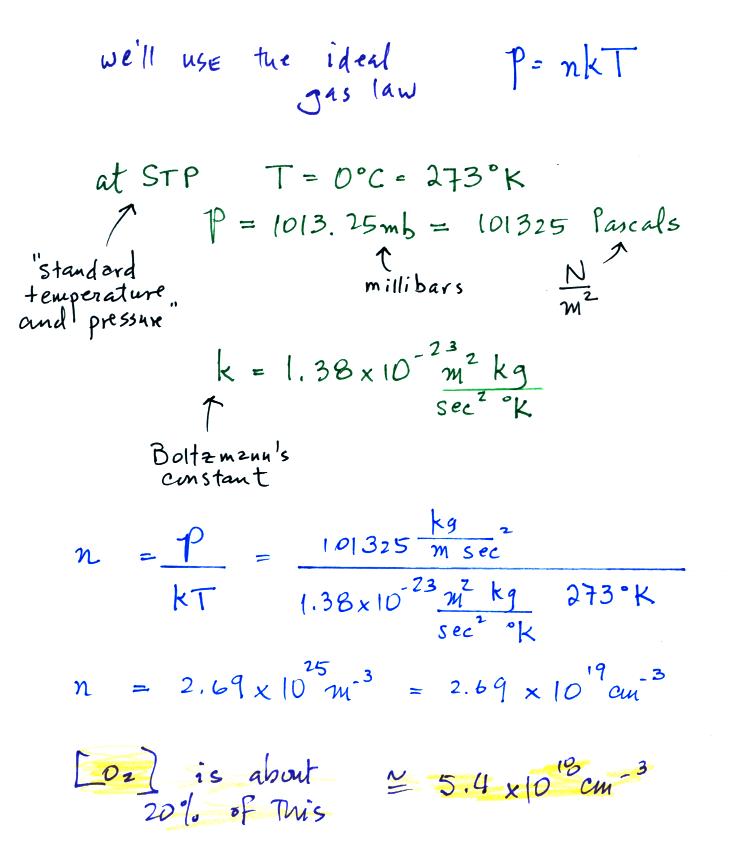 we'll use the ideal gas law P = nkT
at STP T = 0°C = 273°K
P = 1013.25mb = 101325 Pascals
"standard temperature and pressure"
millibars
N/m²
k = 1.38 x 10⁻²³ m² kg / sec² °K
Boltzmann's constant
n = P/kT = 101325 kg/m sec² / 1.38x10⁻²³ m² kg/sec² °K 273°K
n = 2.69 x 10²⁵ m⁻³ = 2.69 x 10¹⁹ cm⁻³
[O₂] is about 20% of This ≅ 5.4 x10¹⁸ cm⁻³